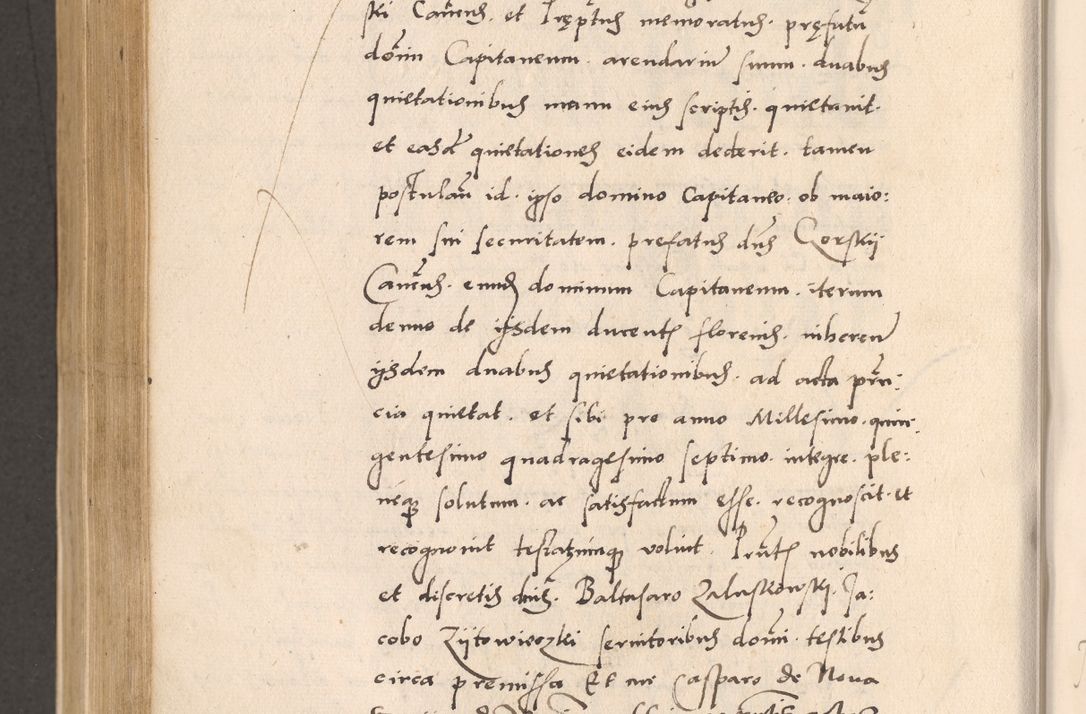 ski Canẽns. et Pręptus memoratus. pręfatũ
dom̃ Capitaneum. arendariũ suum. duabus
quietationibus manu eius scriptis. quietavit.
et easdẽ quietationes eidem dederit. tamen
postulañ id. ipso domino Capitaneo. ob maio:
rem sui securitatem. prefatus dñs Gorskij
Canẽns. eund dominum Capitaneum. iterum
denuo de ijsdem ducentis florenis. inheren̄
ijsdem duabus quietationibus. ad acta p̃n:
cia quietat. et sibi pro anno Millesimo. quin:
gentesimo quadragesimo septimo. integre. ple:
neqʒ solutum. ac satisfactum esse. recognoscit. et
recognovit testatumqʒ voluit. Pr̃ntes nobilibus
et discretis dñis. Baltasaro Zaluskowski. Ja:
cobo Zijtowieczki servitoribus dom̃. testibus
circa premissa Et me Casparo de Nova